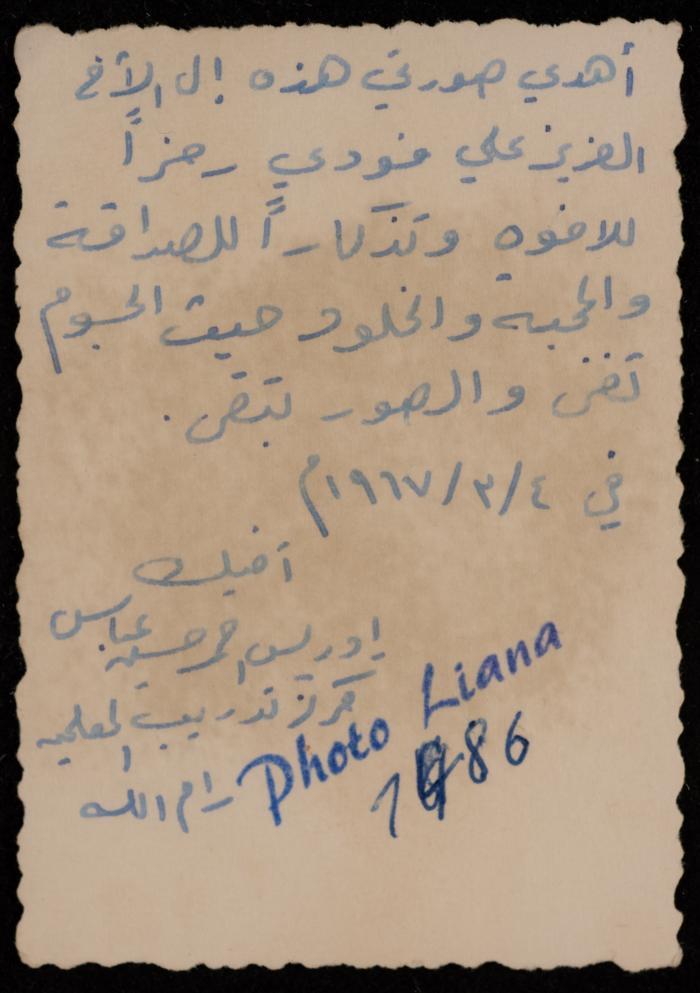 أهدي صورتي هذه إلى الأخ
العزيز علي فودي رمزاً
للاخوه وتذكاراً للصداقة
والمحبه والخلود حيث الجسوم
تفنى والصور تبقى.
في ٤/٣/١٩٦٧م
أخيك
إدريس احمد حسين عباس
مركز تدريب المعلمين
رام الله
Photo Liana